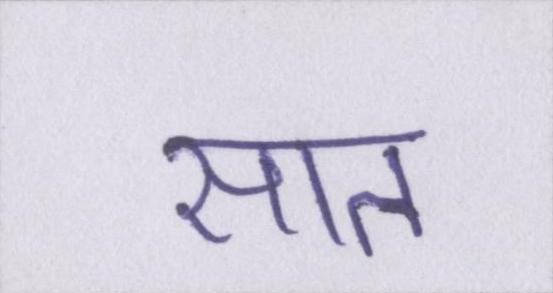 सात